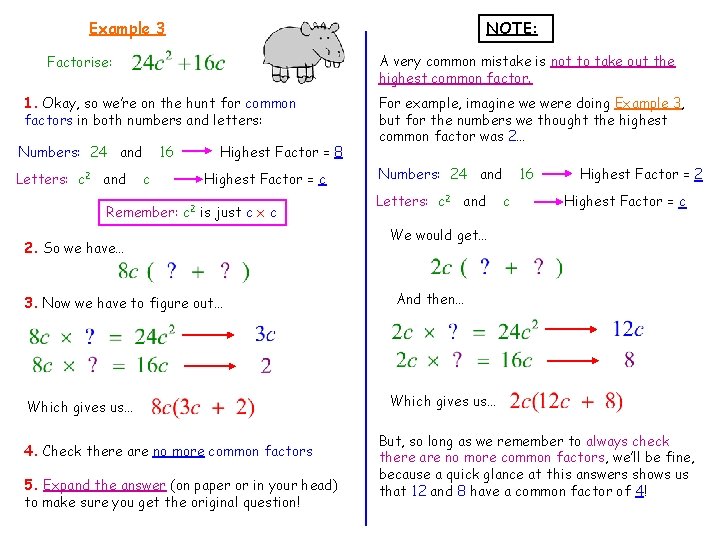 Example 3
Factorise: 24c² +16c
1. Okay, so we're on the hunt for common
factors in both numbers and letters:
Numbers: 24 and 16 Highest Factor = 8
Letters: c² and c Highest Factor = c
Remember: c² is just c × c
2. So we have…
8c ( ? + ? )
3. Now we have to figure out…
8c × ? = 24c² 3c
8c × ? = 16c 2
Which gives us… 8c(3c + 2)
4. Check there are no more common factors
5. Expand the answer (on paper or in your head)
to make sure you get the original question!
NOTE:
A very common mistake is not to take out the
highest common factor.
For example, imagine we were doing Example 3,
but for the numbers we thought the highest
common factor was 2…
Numbers: 24 and 16 Highest Factor = 2
Letters: c² and c Highest Factor = c
We would get…
2c ( ? + ? )
And then…
2c × ? = 24c² 12c
2c × ? = 16c 8
Which gives us… 2c(12c + 8)
But, so long as we remember to always check
there are no more common factors, we'll be fine,
because a quick glance at this answers shows us
that 12 and 8 have a common factor of 4!